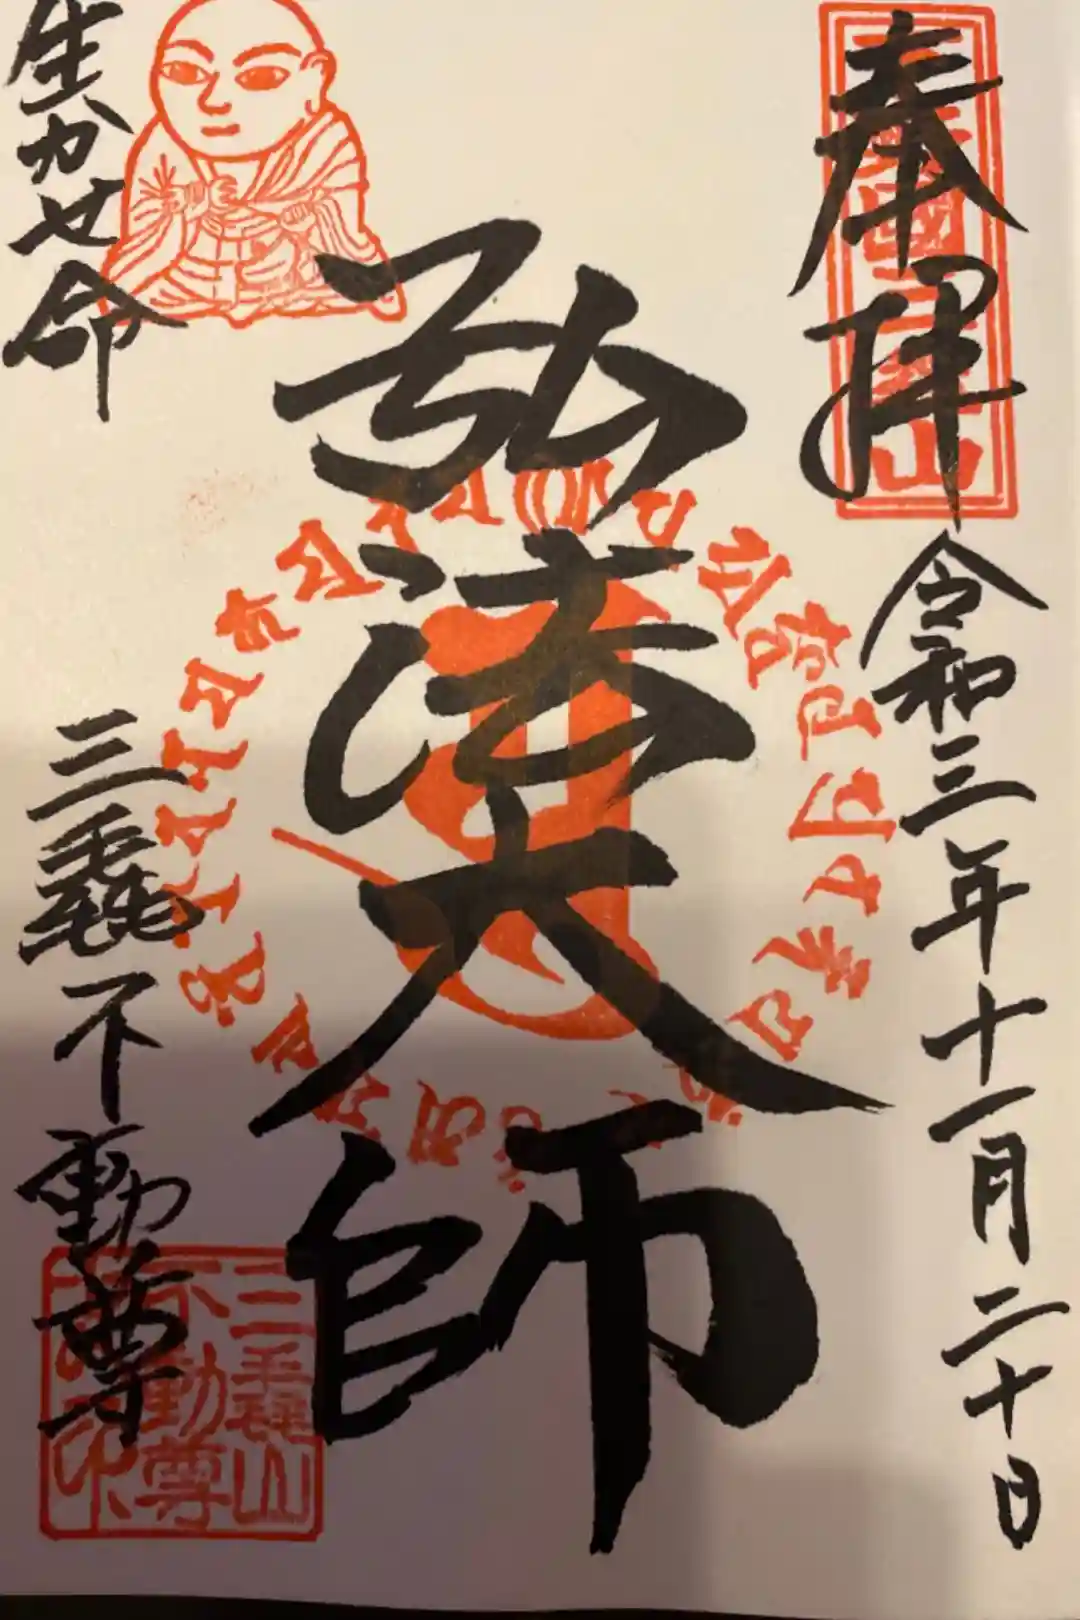 奉拝
令和三年十一月二十日
弘法大師
生かせ命
三毳不動尊
三毳山
不動尊